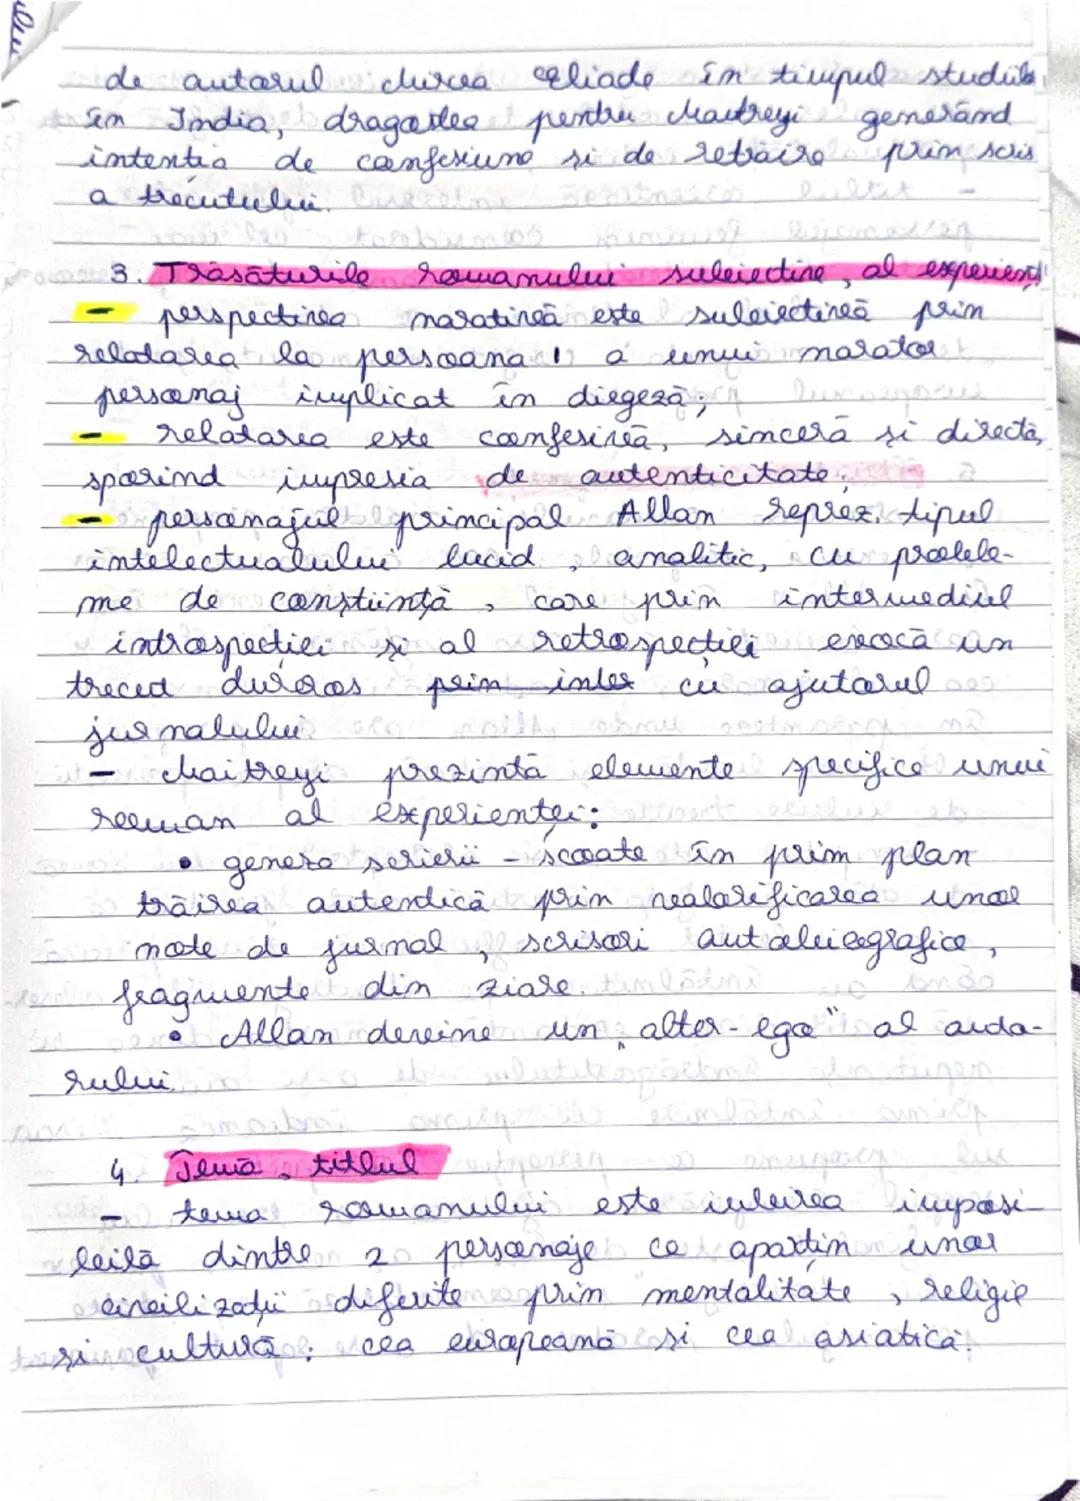 de autorul Mircea Eliade în timpul studiilor
în India, dragostea pentru Maitreyi generând
intenția de confesiune și de retrăire prin scris
a trecutului.
3. Trăsăturile romanului subiectiv, al experienței
- perspectiva narativă este subiectivă prin
relatarea la persoana 1 a unui narator
personaj implicat în diegeză;
- relatarea este confesivă, sinceră și directă,
sporind impresia de autenticitate;
- personajul principal Allan reprez. tipul
intelectualului lucid, analitic, cu proble-
me de conștiință, care prin intermediul
introspecției și al retrospecției evocă un
trecut duros prin inter cu ajutorul
jurnalului.
- Maitreyi prezintă elemente specifice unui
roman al experienței:
• geneza scrierii - scoate în prim plan
trăirea autentică prin valorificarea unor
note de jurnal, scrisori autobiografice,
fragmente din ziare.
• Allan devine un „alter-ego" al auto-
rului.
4. Tema, titlul
- tema romanului este iubirea imposi-
bilă dintre 2 personaje ce aparțin unor
civilizații diferite prin mentalitate, religie
și cultură: cea europeană și cea asiatică.